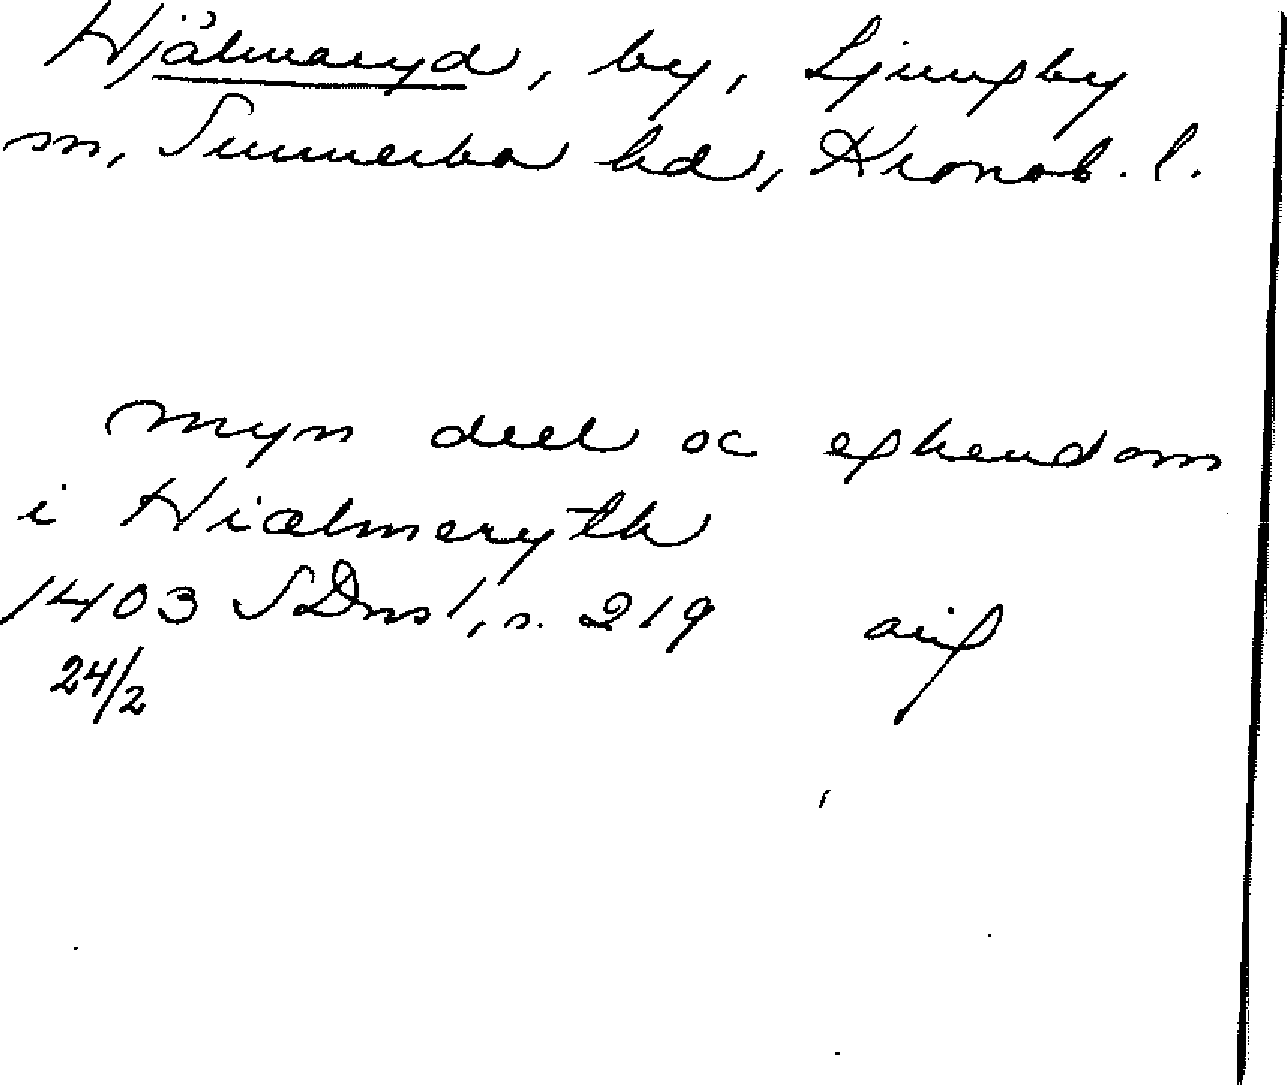 Hjälmaryd, by, Ljungby
sn, Sunnerbo hd, Kronob. l.
myn deel oc eghendom
i Hiælmeryth
1403 SDns 1, s. 219 avs
24/2